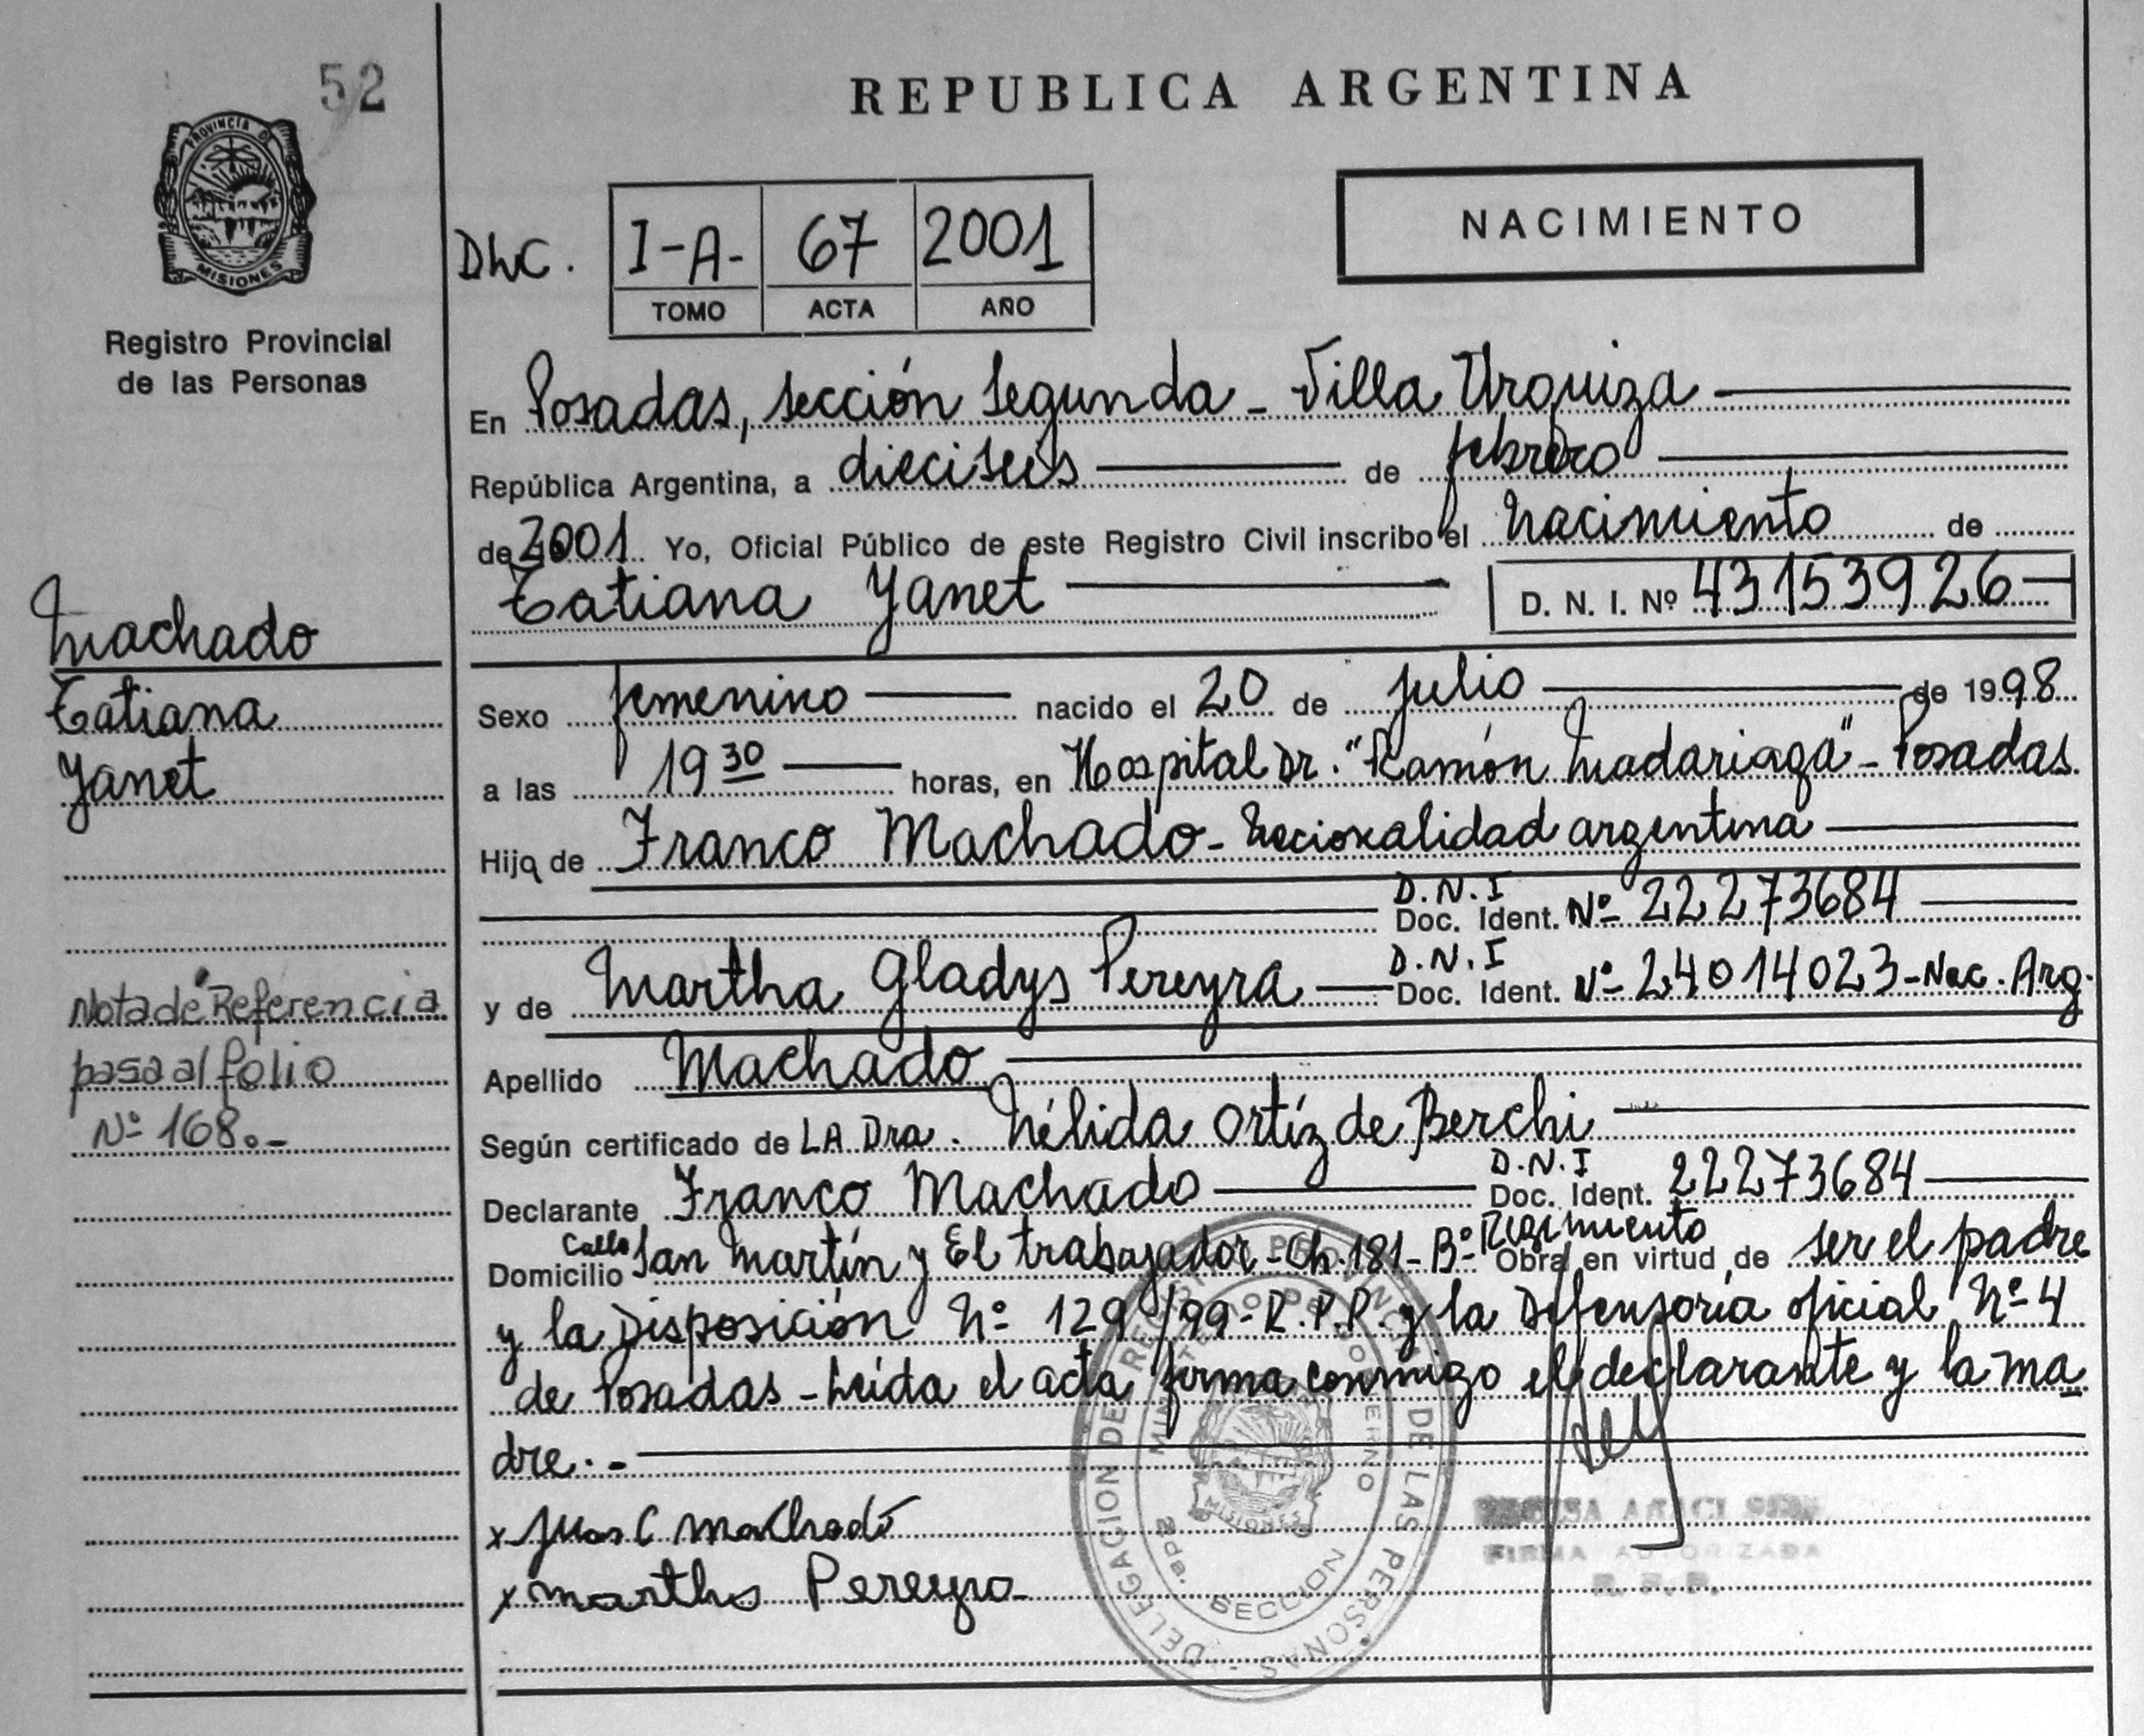 52
PROVINCIA DE
MISIONES
Registro Provincial
de las Personas
REPUBLICA ARGENTINA
NACIMIENTO
I-A- 67 2001
TOMO ACTA AÑO
En Posadas, sección segunda - Villa Urquiza
República Argentina, a dieciseis de febrero
de 2001 Yo, Oficial Público de este Registro Civil inscribo el Nacimiento de
Tatiana Yanet D. N. I. Nº 43153926
Machado
Tatiana
Yanet
Sexo femenino nacido el 20 de julio de 1998
a las 19 30 horas, en Hospital Dr. "Ramón Madariaga" - Posadas
Hija de Franco Machado - Nacionalidad argentina
D.N.I
Doc. Ident. Nº 22273684
y de Martha Gladys Pereyra D.N.I Doc. Ident. Nº 24014023 - Nac. Arg.
Nota de Referencia
pasa al folio
Nº 168.-
Apellido Machado
Según certificado de LA Dra. Nélida Ortíz de Berchi
Declarante Franco Machado D.N.I Doc. Ident. 22273684
Domicilio Calle San Martín y El trabajador - Ch. 181 - Bº Regimiento Obra en virtud de ser el padre
y la Disposición Nº 129/99 - R.P.P. y la Defensoría oficial Nº 4
de Posadas - Leída el acta firma conmigo el declarante y la ma
dre.-
x Machado
x Martha Pereyra
DELEGACION DE REGISTRO PROVINCIAL DE LAS PERSONAS
MINISTERIO DE GOBIERNO
2da. SECCION
MISIONES
FIRMA AUTORIZADA
R. P. P.